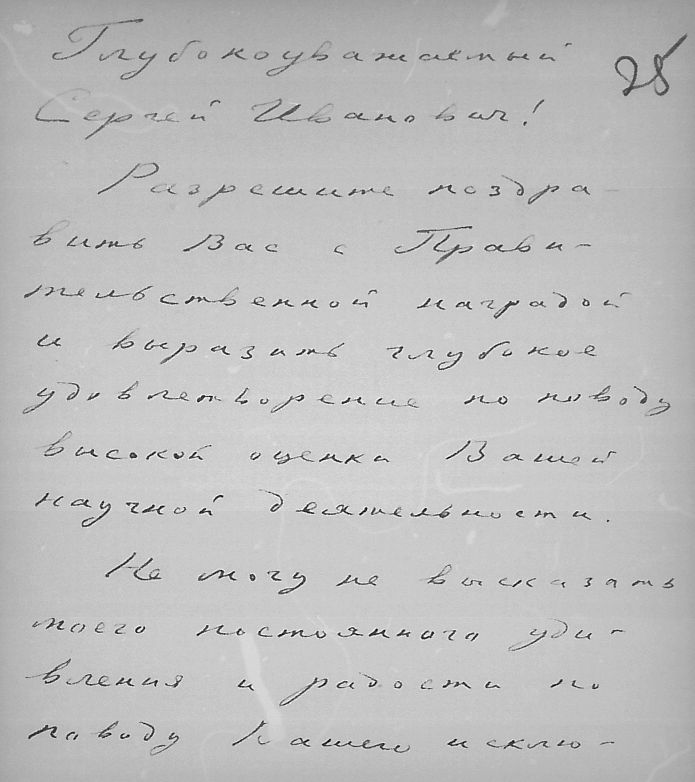 Глубокоуважаемый
25
Сергей Иванович!
Разрешите поздра-
вить Вас с Прави-
тельственной наградой
и выразить глубокое
удовлетворение по поводу
высокой оценки Вашей
научной деятельности.
Не могу не высказать
моего постоянного уди-
вления и радости по
поводу Вашего исклю-